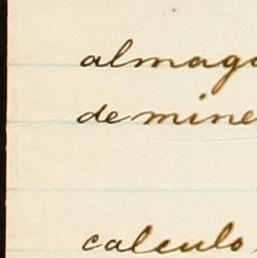 almaga
de mine
calculo